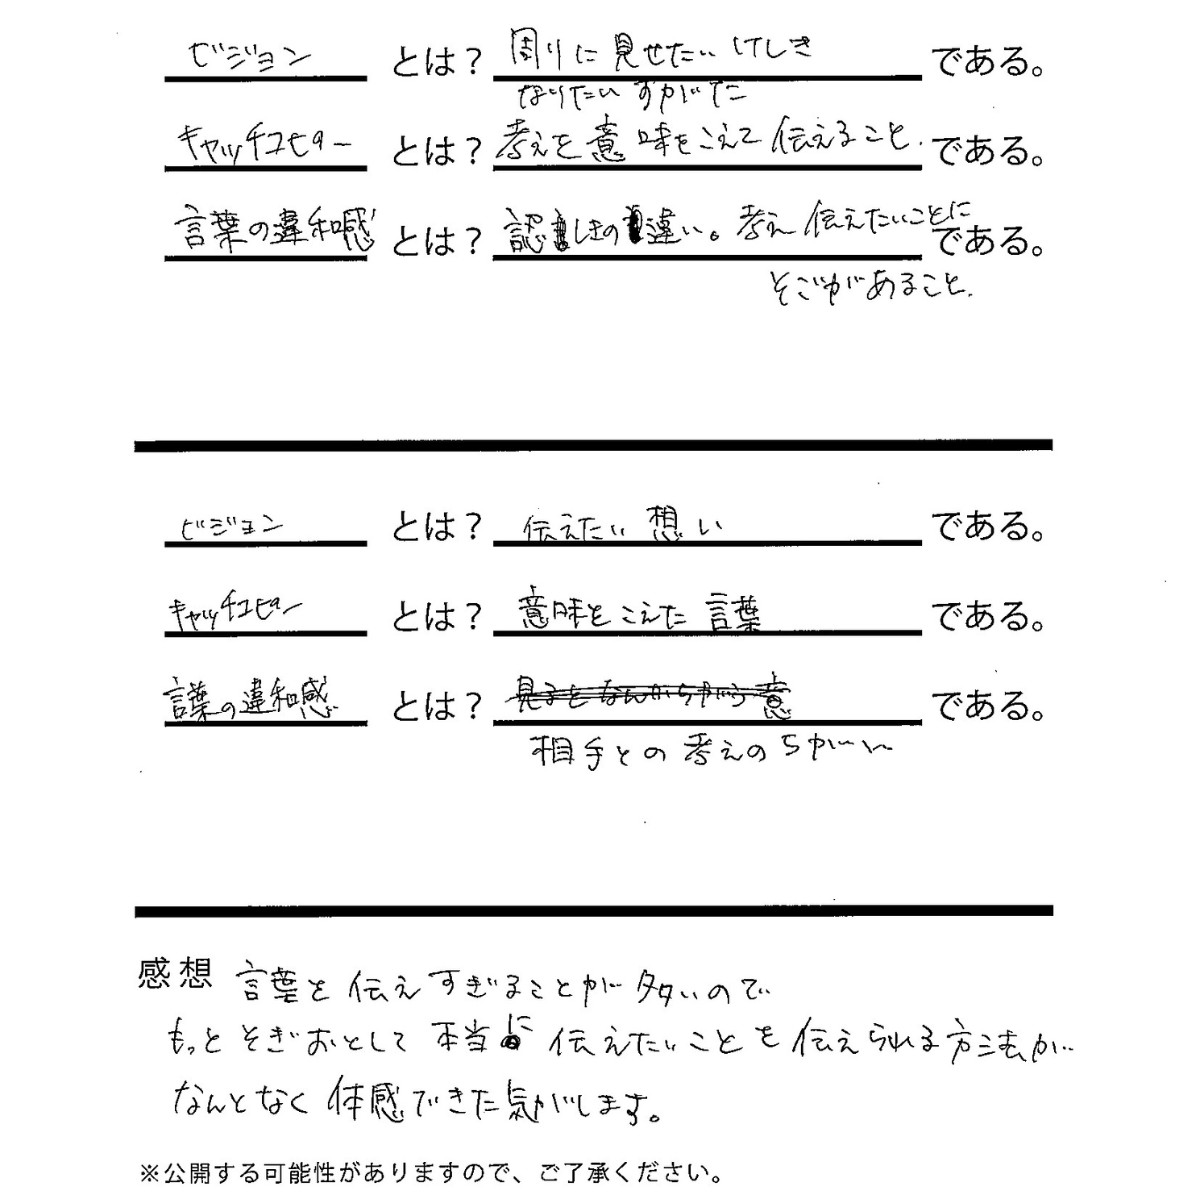 ビジョン とは? 周りに見せたいけしき である。
なりたいすがただ
キャッチコピー とは? 考えを意味をこえて伝えること. である。
言葉の違和感 とは? 認しきの違い。考え 伝えたいことに である。
そごがあること.
ビジョン とは? 伝えたい想い である。
キャッチコピー とは? 意味をこえた言葉 である。
言葉の違和感 とは? 見るとなんかちがう意 である。
相手との考えのちがい
感想 言葉を伝えすぎることが多いので
もっとそぎおとして本当に伝えたいことを伝えられる方法が
なんとなく体感できた気がします。
※公開する可能性がありますので、ご了承ください。